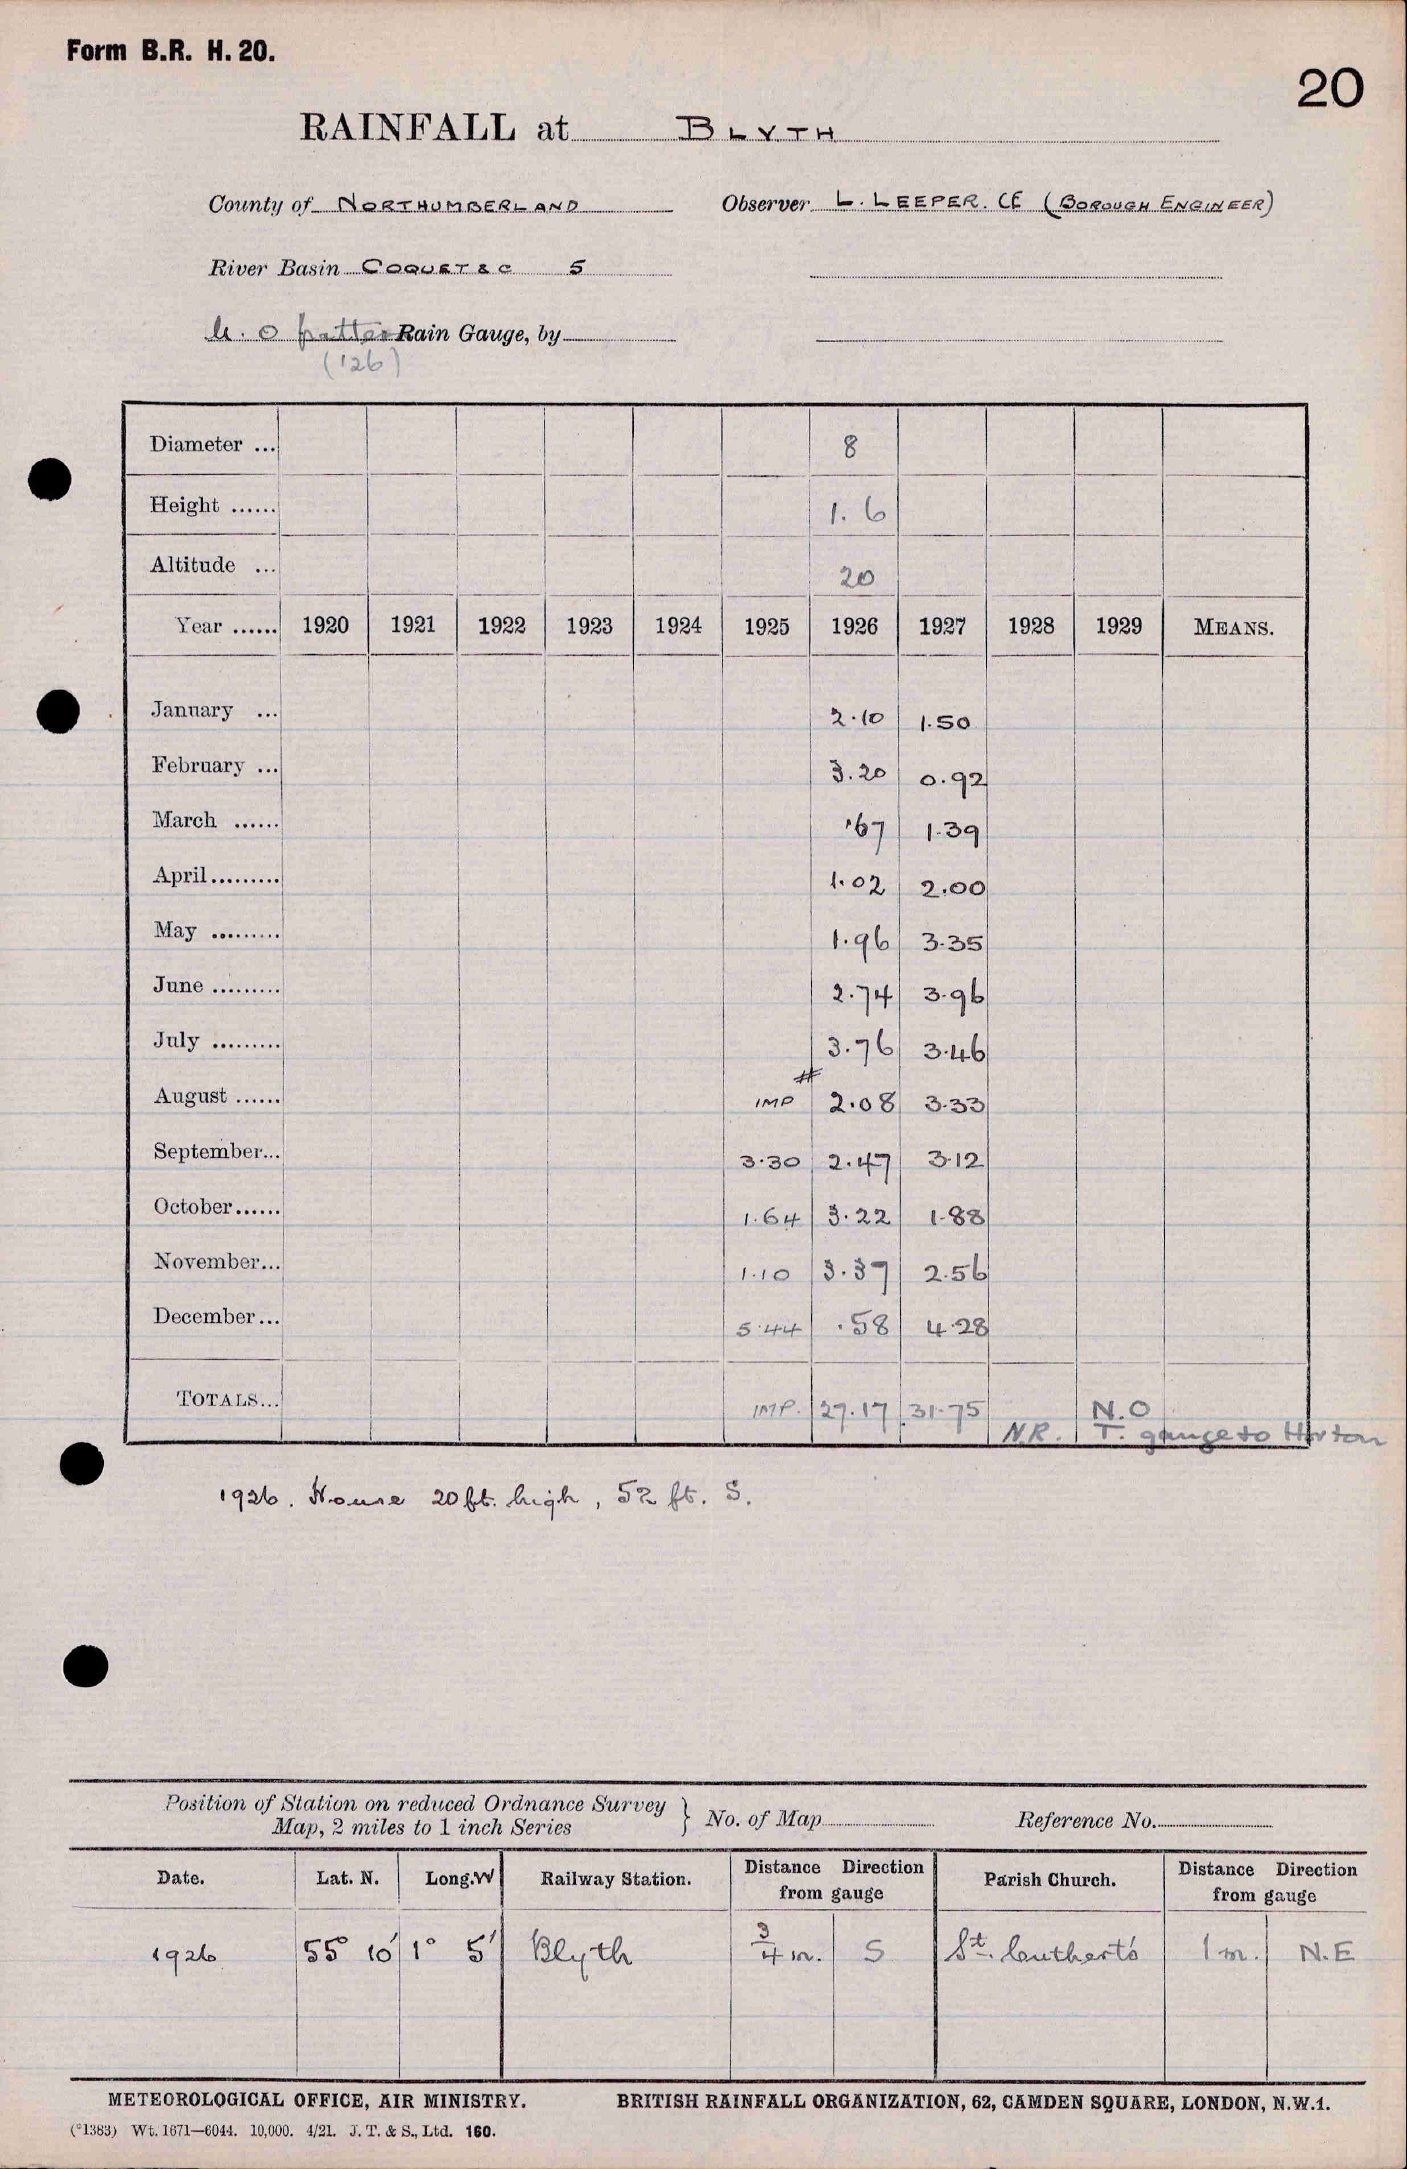 Form B.R. H. 20.
20
RAINFALL at BLYTH
County of NORTHUMBERLAND Observer L. LEEPER. CE (BOROUGH ENGINEER)
River Basin COQUET & C 5
M. O pattern Rain Gauge, by
('26)
Diameter ... 8
Height ...... 1. 6
Altitude ... 20
Year ...... 1920 1921 1922 1923 1924 1925 1926 1927 1928 1929 MEANS.
January ... 2.10 1.50
February ... 3.20 0.92
March ...... .67 1.39
April......... 1.02 2.00
May ......... 1.96 3.35
June ......... 2.74 3.96
July ......... 3.76 3.46
#
August ...... IMP 2.08 3.33
September... 3.30 2.47 3.12
October...... 1.64 3.22 1.88
November... 1.10 3.37 2.56
December... 5.44 .58 4.28
TOTALS... IMP. 27.17 31.75 N.O
N.R. T. gauge to Horton
1926. House 20 ft. high, 52 ft. S.
Position of Station on reduced Ordnance Survey
Map, 2 miles to 1 inch Series } No. of Map Reference No.
Date. Lat. N. Long. W Railway Station. Distance Direction from gauge Parish Church. Distance Direction from gauge
1926 55° 10' 1° 5' Blyth 3/4 m. S St. Cuthbert's 1 m. N.E
METEOROLOGICAL OFFICE, AIR MINISTRY. BRITISH RAINFALL ORGANIZATION, 62, CAMDEN SQUARE, LONDON, N.W.1.
(*1383) Wt. 1671—6044. 10,000. 4/21. J. T. & S., Ltd. 160.